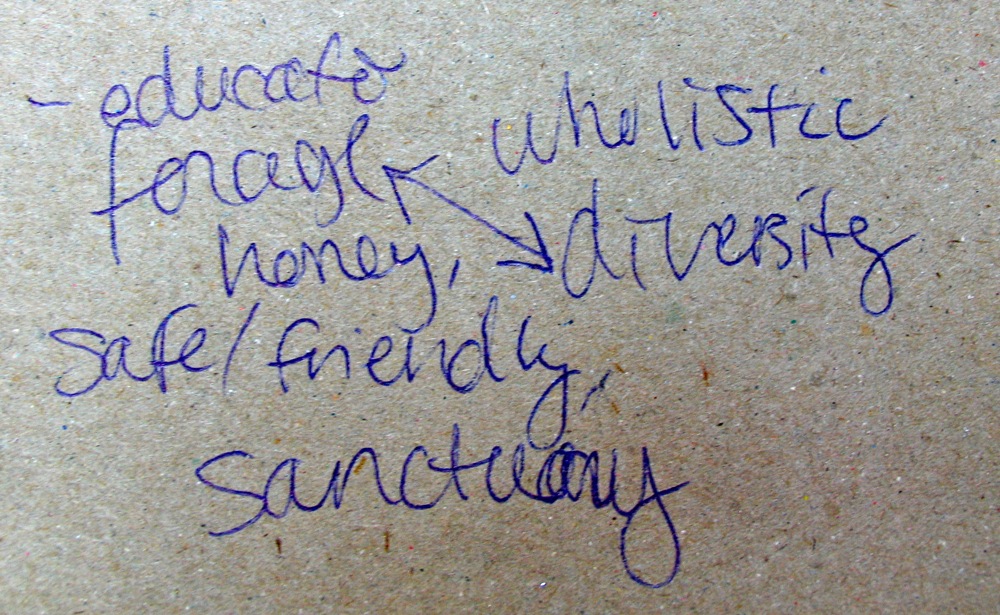 - educato
forage wholistic
honey, diversity
safe/friendly,
sanctuary